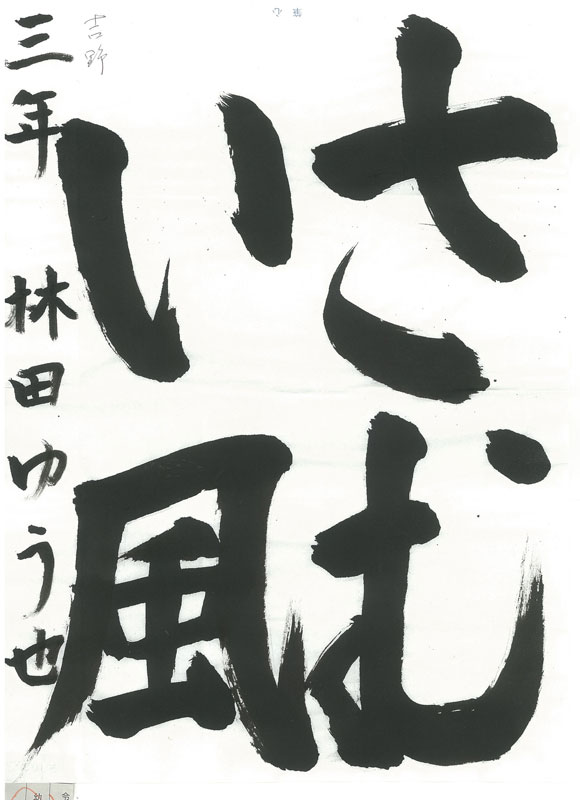 さむ
い風
三年 林田ゆう也
吉野